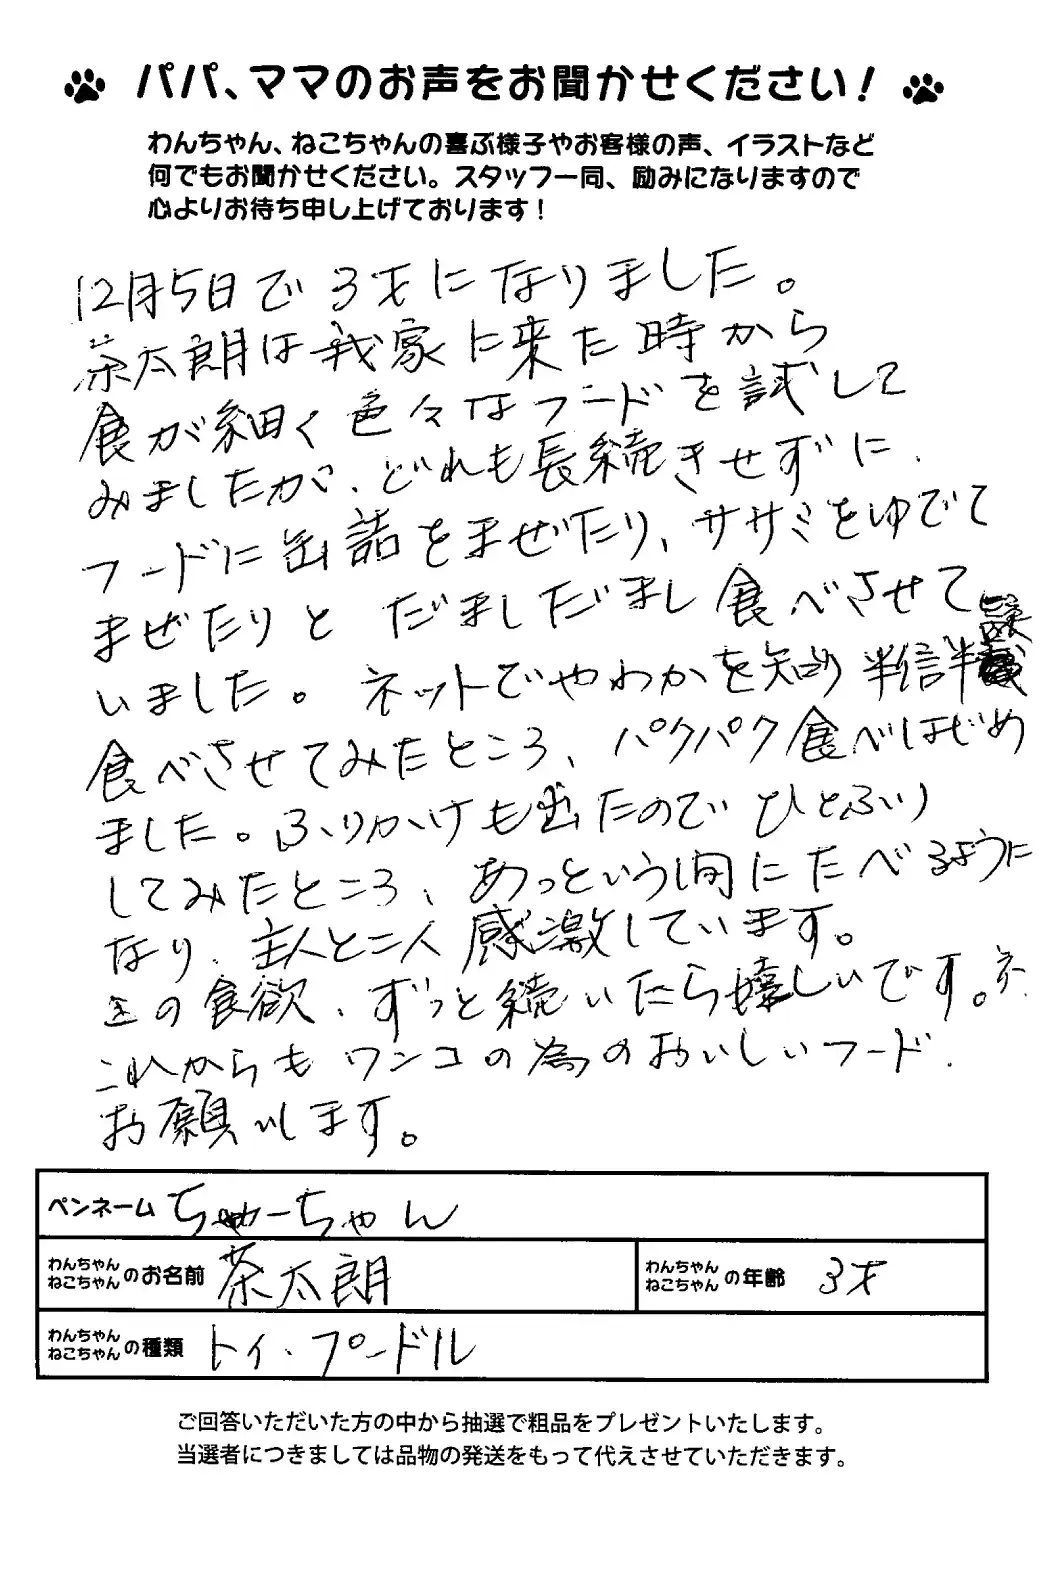 パパ、ママのお声をお聞かせください！
わんちゃん、ねこちゃんの喜ぶ様子やお客様の声、イラストなど
何でもお聞かせください。スタッフ一同、励みになりますので
心よりお待ち申し上げております！
12月5日で3才になりました。
茶太朗は我家に来た時から
食が細く色々なフードを試して
みましたが、どれも長続きせずに、
フードに缶詰をまぜたり、ササミをゆでて
まぜたりと だましだまし食べさせて
いました。ネットでやわかを知り半信半疑
食べさせてみたところ、パクパク食べはじめ
ました。ふりかけも出たのでひとふり
してみたところ、あっという間にたべるように
なり、主人と二人感激しています。
この食欲、ずっと続いたら嬉しいです。
これからもワンコの為のおいしいフード、
お願いします。
ペンネーム ちゃーちゃん
わんちゃん ねこちゃん のお名前 茶太朗
わんちゃん ねこちゃん の年齢 3才
わんちゃん ねこちゃん の種類 トイ・プードル
ご回答いただいた方の中から抽選で粗品をプレゼントいたします。
当選者につきましては品物の発送をもって代えさせていただきます。